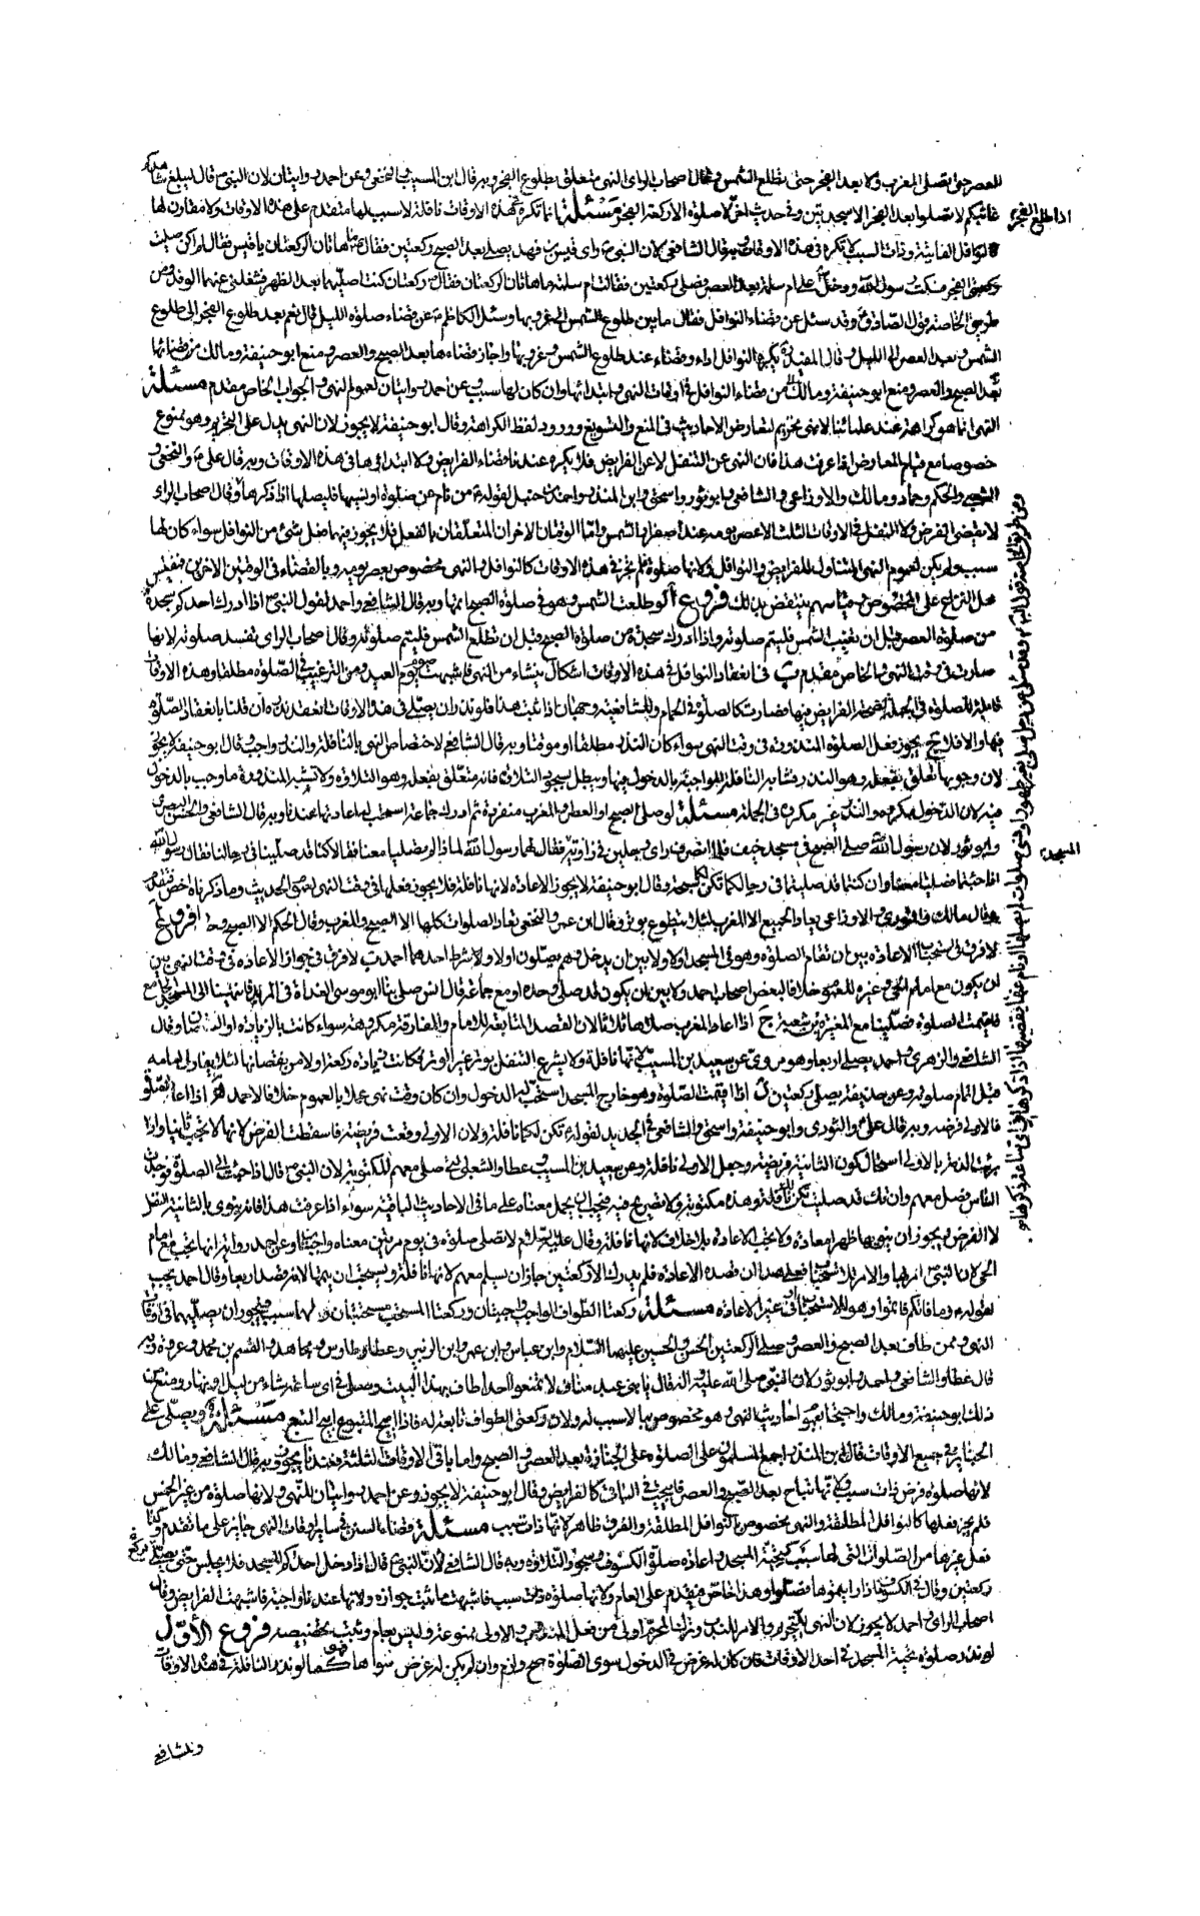 العصر حتى تصلى المغرب ولا بعد الفجر حتى تطلع الشمس وقال اصحاب الراى النهى متعلق بطلوع الفجر وبه قال ابن المسيب والنخعى وعن احمد روايتان لان النبى ص قال ليبلغ شاهدكم
غائبكم لا تصلوا بعد الفجر الا سجدتين وفى حديث اخر لا صلوة الا ركعتا الفجر مسئلة انما تكره فى هذه الاوقات نافلة لا سبب لها متقدم على هذه الاوقات ولا مقارن لها
اذا طلع الفجر
النوافل الفايتة وذات السبب لا تكره فى هذه الاوقات وبه قال الشافعى لان النبى ص راى قيس بن فهد يصلى بعد الصبح ركعتين فقال ما هاتان الركعتان يا قيس فقال لم اكن صليت
ركعتى الفجر فسكت رسول الله ودخل على ام سلمة بعد العصر فصلى ركعتين فقالت ام سلمة ما هاتان الركعتان فقال ركعتان كنت اصليهما بعد الظهر فشغلنى عنهما الوفد ومن
طريق الخاصة قول الصادق وقد سئل عن قضاء النوافل فقال ما بين طلوع الشمس الى غروبها وسئل الكاظم عن قضاء صلوة الليل قال نعم بعد طلوع الفجر الى طلوع
الشمس وبعد العصر الى الليل وقال المفيد يكره النوافل اداء وقضاء عند طلوع الشمس وغروبها واجاز قضاءها بعد الصبح والعصر ومنع ابو حنيفة ومالك من قضائها
بعد الصبح والعصر ومنع ابو حنيفة ومالك من قضاء النوافل فى اوقات النهى وابتدائها وان كان لها سبب وعن احمد روايتان لعموم النهى والجواب الخاص مقدم مسئلة
النهى انما هو كراهة عند علمائنا لا نهى تحريم لتعارض الاحاديث فى المنع والتسويغ وورود لفظ الكراهة وقال ابو حنيفة لا يجوز لان النهى يدل على التحريم وهو ممنوع
خصوصا مع قيام المعارض اذا عرفت هذا فان النهى عن التنفل لا عن الفرايض فلا يكره عندنا قضاء الفرايض ولا ابتداؤها فى هذه الاوقات وبه قال على والنخعى و
الشعبى والحكم وحماد ومالك والاوزاعى والشافعى وابو ثور واسحق وابن المنذر واحمد بن حنبل لقوله من نام عن صلوة او نسيها فليصلها اذا ذكرها وقال اصحاب الراى
لا تقضى الفرض ولا النفل فى الاوقات الثلث الا عصر يومه عند اصفرار الشمس واما الوقتان الاخران المتعلقان بالفعل فلا يجوز فيها فعل شئ من النوافل سواء كان لها
سبب او لم يكن لعموم النهى المتناول للفرايض والنوافل ولانها صلوة فلم تجز فى هذه الاوقات كالنوافل والنهى مخصوص بعصر يومه وبالقضاء فى الوقتين الاخرين فنقيس
محل النزاع على المخصوص وقياسهم ينتقض بذلك فروع آ لو طلعت الشمس وهو فى صلوة الصبح اتمها وبه قال الشافعى واحمد لقول النبى ص اذا ادرك احدكم سجدة
من صلوة العصر قبل ان تغيب الشمس فليتم صلوته واذا ادرك سجدة من صلوة الصبح قبل ان تطلع الشمس فليتم صلوته وقال اصحاب الراى تفسد صلوته لانها
صارت فى وقت النهى والخاص مقدم ب فى انعقاد النوافل فى هذه الاوقات اشكال ينشاء من النهى فاشبهت صوم يوم العيد ومن الترغيب فى الصلوة مطلقا وهذه الاوقات
قابلة للصلوة فى الجملة لصحة الفرايض فيها فصارت كالصلوة فى الحمام وللشافعية وجهان اذا ثبت هذا فلو نذر ان يصلى فى هذه الاوقات انعقد نذره ان قلنا بانعقاد الصلوة
فيها والا فلا ج يجوز فعل الصلوة المنذورة فى وقت النهى سواء كان النذر مطلقا او موقتا وبه قال الشافعى لاختصاص النهى بالنافلة والنذر واجب وقال ابو حنيفة لا يجوز
لان وجوبها تعلق بفعله وهو النذر فشابه النافلة الواجبة بالدخول فيها ويبطل بسجود التلاوة فانه متعلق بفعله وهو التلاوة ولا تشبه المنذورة ما وجب بالدخول
فيه لان الدخول مكروه والنذر غير مكروه فى الجملة مسئلة لو صلى الصبح او العصر او المغرب منفردة ثم ادرك جماعة استحب له اعادتها عندنا وبه قال الشافعى والحسن البصرى
وابو ثور لان رسول الله صلى الصبح فى مسجد خيف فلما انصرف راى رجلين فى زاوية فقال لهما رسول الله لما ذا لم تصليا معنا فقالا كنا قد صلينا فى رحالنا فقال رسول الله
المسجد
اذا جئتما فصليا معنا وان كنتما قد صليتما فى رحالكما تكن لكما سبحة وقال ابو حنيفة لا يجوز الاعادة لانها نافلة فلا يجوز فعلها فى وقت النهى لعموم الحديث وما ذكرناه اخص فيقدم
وقال مالك والثورى والاوزاعى يعاد الجميع الا المغرب لئلا يتطوع بوتر وقال ابن عمر والنخعى تعاد الصلوات كلها الا الصبح والمغرب وقال الحكم الا الصبح وحدها فروع آ
لا فرق فى استحباب الاعادة بين ان تقام الصلوة وهو فى المسجد اولا ولا بين ان يدخل وهم يصلون اولا ولا شرط احدهما احمد ب لا فرق فى جواز الاعادة فى وقت النهى بين
ان يكون مع امام الحى وغيره للعموم خلافا لبعض اصحاب احمد ولا بين ان يكون قد صلى وحده او مع جماعة قال انس صلى بنا ابو موسى الغداة فى المربد فانتهينا الى المسجد الجامع
فاقيمت الصلوة فصلينا مع المغيرة بن شعبة ج اذا اعاد المغرب صلاها ثلاثا لان القصد المتابعة للامام والمفارقة مكروهة سواء كانت بالزيادة او النقصان وقال
الشافعى والزهرى واحمد يصلى اربعا وهو مروى عن سعيد بن المسيب لانها نافلة ولا يشرع التنفل بوتر غير الوتر فكانت زيادة ركعة اولى من نقصانها لئلا يفارق امامه
قبل اتمام صلوته وعن حذيفة يصلى ركعتين د اذا اقيمت الصلوة وهو خارج المسجد استحب له الدخول وان كان وقت نهى عملا بالعموم خلافا لاحمد ه اذا اعاد الصلوة
فالاولى فرضه وبه قال على والثورى وابو حنيفة واسحق والشافعى فى الجديد لقوله تكن لكما نافلة ولان الاولى وقعت فريضة فاسقطت الفرض لانها لا تجب ثانيا واذا
برئت الذمة بالاولى استحال كون الثانية فريضة وجعل الاولى نافلة وعن سعيد بن المسيب وعطا والشعبى التى صلى معهم المكتوبة لان النبى ص قال اذا جئت الى الصلوة فوجدت
الناس فصل معهم وان كنت قد صليت تكن لك نافلة وهذه مكتوبة ولا تصريح فيه فيجب ان يحمل معناه على ما فى الاحاديث الباقية سواء اذا عرفت هذا فانه ينوى بالثانية النفل
لا الفرض ويجوز ان ينويها ظهرا معادة ولا تجب الاعادة بلا خلاف لانها نافلة وقال عليه السلام لا تصلى صلوة فى يوم مرتين معناه واجبتان وعن احمد رواية انها تجب مع امام
الحى لان النبى ص امر بها والامر للاستحباب فعلى هذا ان قصد الاعادة فلم يدرك الا ركعتين جاز ان يسلم معهم لانها نافلة ويستحب ان يتمها لانه قصد اربعا وقال احمد يجب
لقوله وما فاتكم فاتموا وهو للاستحباب او فى غير الاعادة مسئلة ركعتا الطواف الواجب واجبتان وركعتا المستحب مستحبتان ولهما سبب فيجوز ان يصليهما فى اوقات
النهى وممن طاف بعد الصبح والعصر وصلى الركعتين الحسن والحسين عليهما السلام وابن عباس وابن عمر وابن الزبير وعطا وطاوس ومجاهد والقسم بن محمد وعروة وبه
قال عطا والشافعى واحمد وابو ثور لان النبى صلى الله عليه واله قال يا بنى عبد مناف لا تمنعوا احدا طاف بهذا البيت وصلى فى اى ساعة شاء من ليل او نهار ومنع من
ذلك ابو حنيفة ومالك واحتجا بعموم احاديث النهى وهو مخصوص بما لا سبب له ولان ركعتى الطواف تابعة له فاذا ابيح المتبوع ابيح التبع مسئلة ويصلى على
الجنايز فى جميع الاوقات قال ابن المنذر اجمع المسلمون على الصلوة على الجنازة بعد العصر والصبح واما باقى الاوقات الثلثة فعندنا يجوز وبه قال الشافعى ومالك
لانها صلوة فرض ذات سبب ولانها تباح بعد الصبح والعصر فابيحت فى الباقى كالفرايض وقال ابو حنيفة لا يجوز وعن احمد روايتان للنهى ولانها صلوة من غير الخمس
فلم يجز فعلها كالنوافل المطلقة والنهى مخصوص بالنوافل المطلقة والفرق ظاهر لانها ذات سبب مسئلة قضاء السنن فى ساير اوقات النهى جايز على ما تقدم وكذا
فعل غيرها من الصلوات التى لها سبب كتحية المسجد واعادة صلوة الكسوف وسجود التلاوة وبه قال الشافعى لان النبى ص قال اذا دخل احدكم المسجد فلا يجلس حتى يصلى يركع
ركعتين وقال فى الكسوف فاذا رايتموها فصلوا وهذا خاص فيقدم على العام ولانها صلوة ذات سبب فاشبهت ما ثبت جوازه ولانها عندنا واجبة فاشبهت الفرايض وقال
اصحاب الراى واحمد لا يجوز لان النهى للتحريم والامر للندب وترك المحرم اولى من فعل المندوب والاولى ممنوعة وليس بعام وثبت تخصيصه فروع الأول
لو نذر صلوة تحية المسجد فى احد الاوقات فان كان له غرض فى الدخول سوى الصلوة صح ولزم وان لم يكن له غرض سواها فهو كما لو نذر النافلة فى هذه الاوقات
وللشافعى
ومن طريق الخاصة قول الباقر وقد سئل عن رجل صلى بغير طهور او نسى صلوات لم يصلها او نام عنها يقضيها اذا ذكرها فى اى ساعة ذكرها